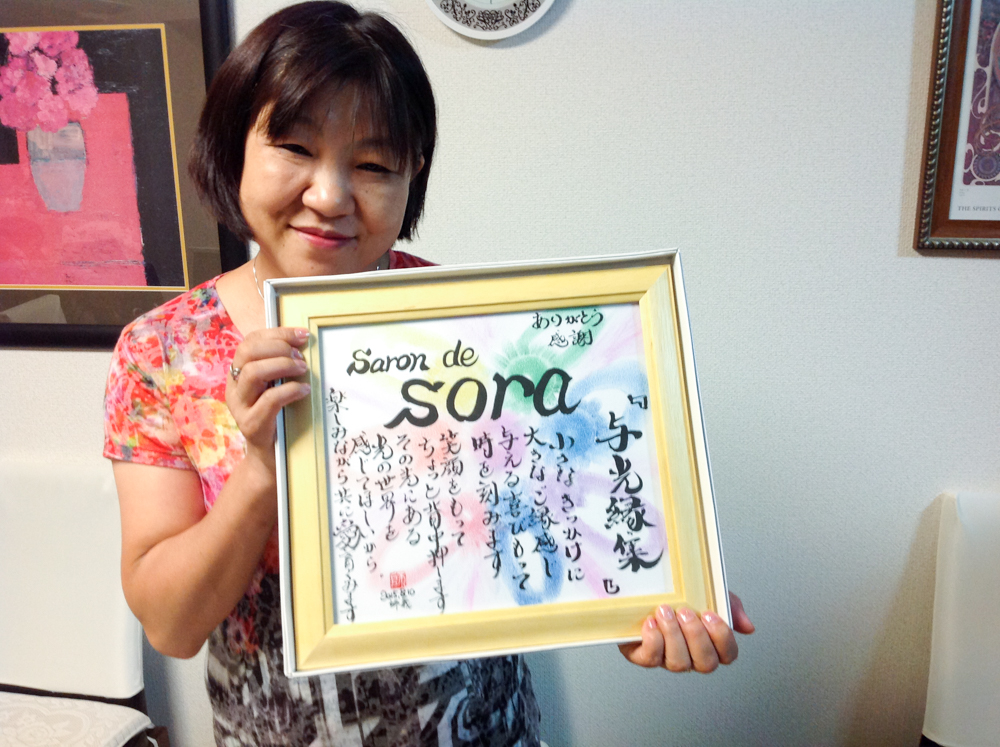 ありがとう
感謝
Saron de
sora
『与光縁集』
小さなきっかけに
大きなご縁感じ
与える喜びもって
時を刻みます
笑顔をもって
ちょっと背中押します
その光にある
光の世界を
感じてほしいから
楽しみながら共に愛育みます
THE SPIRITS